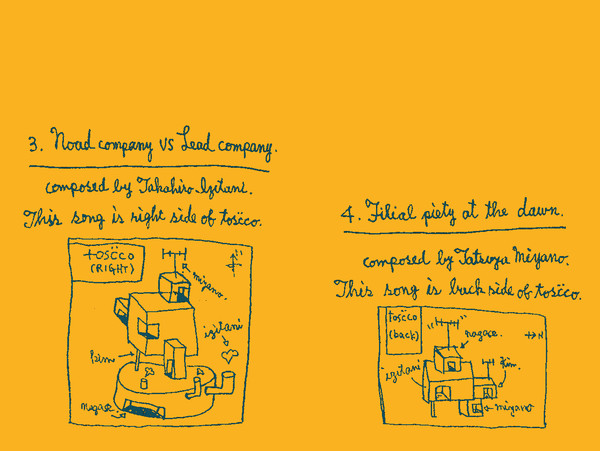 3. Noad company VS Lead company.
composed by Takahiro Izitani.
This song is right side of toscco.
toscco
(RIGHT)
miyano.
izitani
kim
nagase.
4. Filial piety at the dawn.
composed by Tatsuya Miyano.
This song is back side of toscco.
toscco
(back)
nagace.
izitani
kim.
miyano